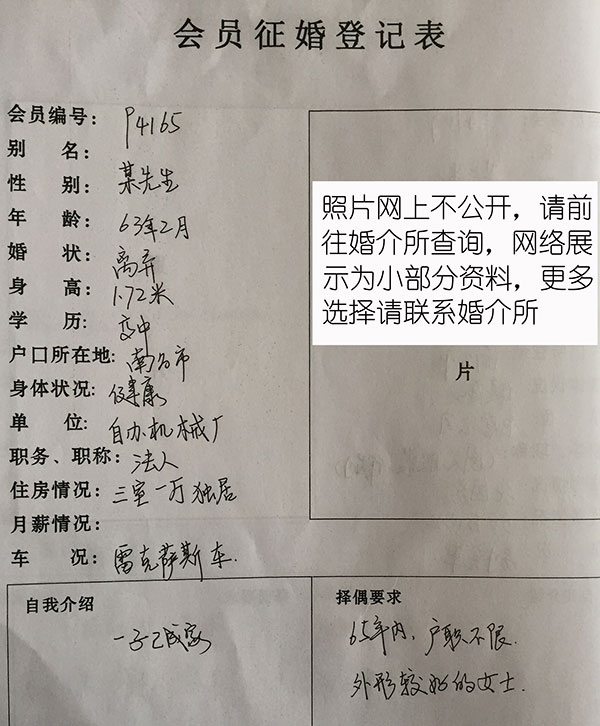 会员征婚登记表
会员编号: P4165
别 名:
性 别: 某先生
年 龄: 63年2月
婚 状: 离异
身 高: 1.72米
学 历: 高中
户口所在地: 南京市
身体状况: 健康
单 位: 自办机械厂
职务、职称: 法人
住房情况: 三室一厅 独居
月薪情况:
车 况: 雷克萨斯车.
照片网上不公开，请前
往婚介所查询，网络展
示为小部分资料，更多
选择请联系婚介所
片
自我介绍
一子已成家
择偶要求
65年内、户职不限.
外形较好的女士.